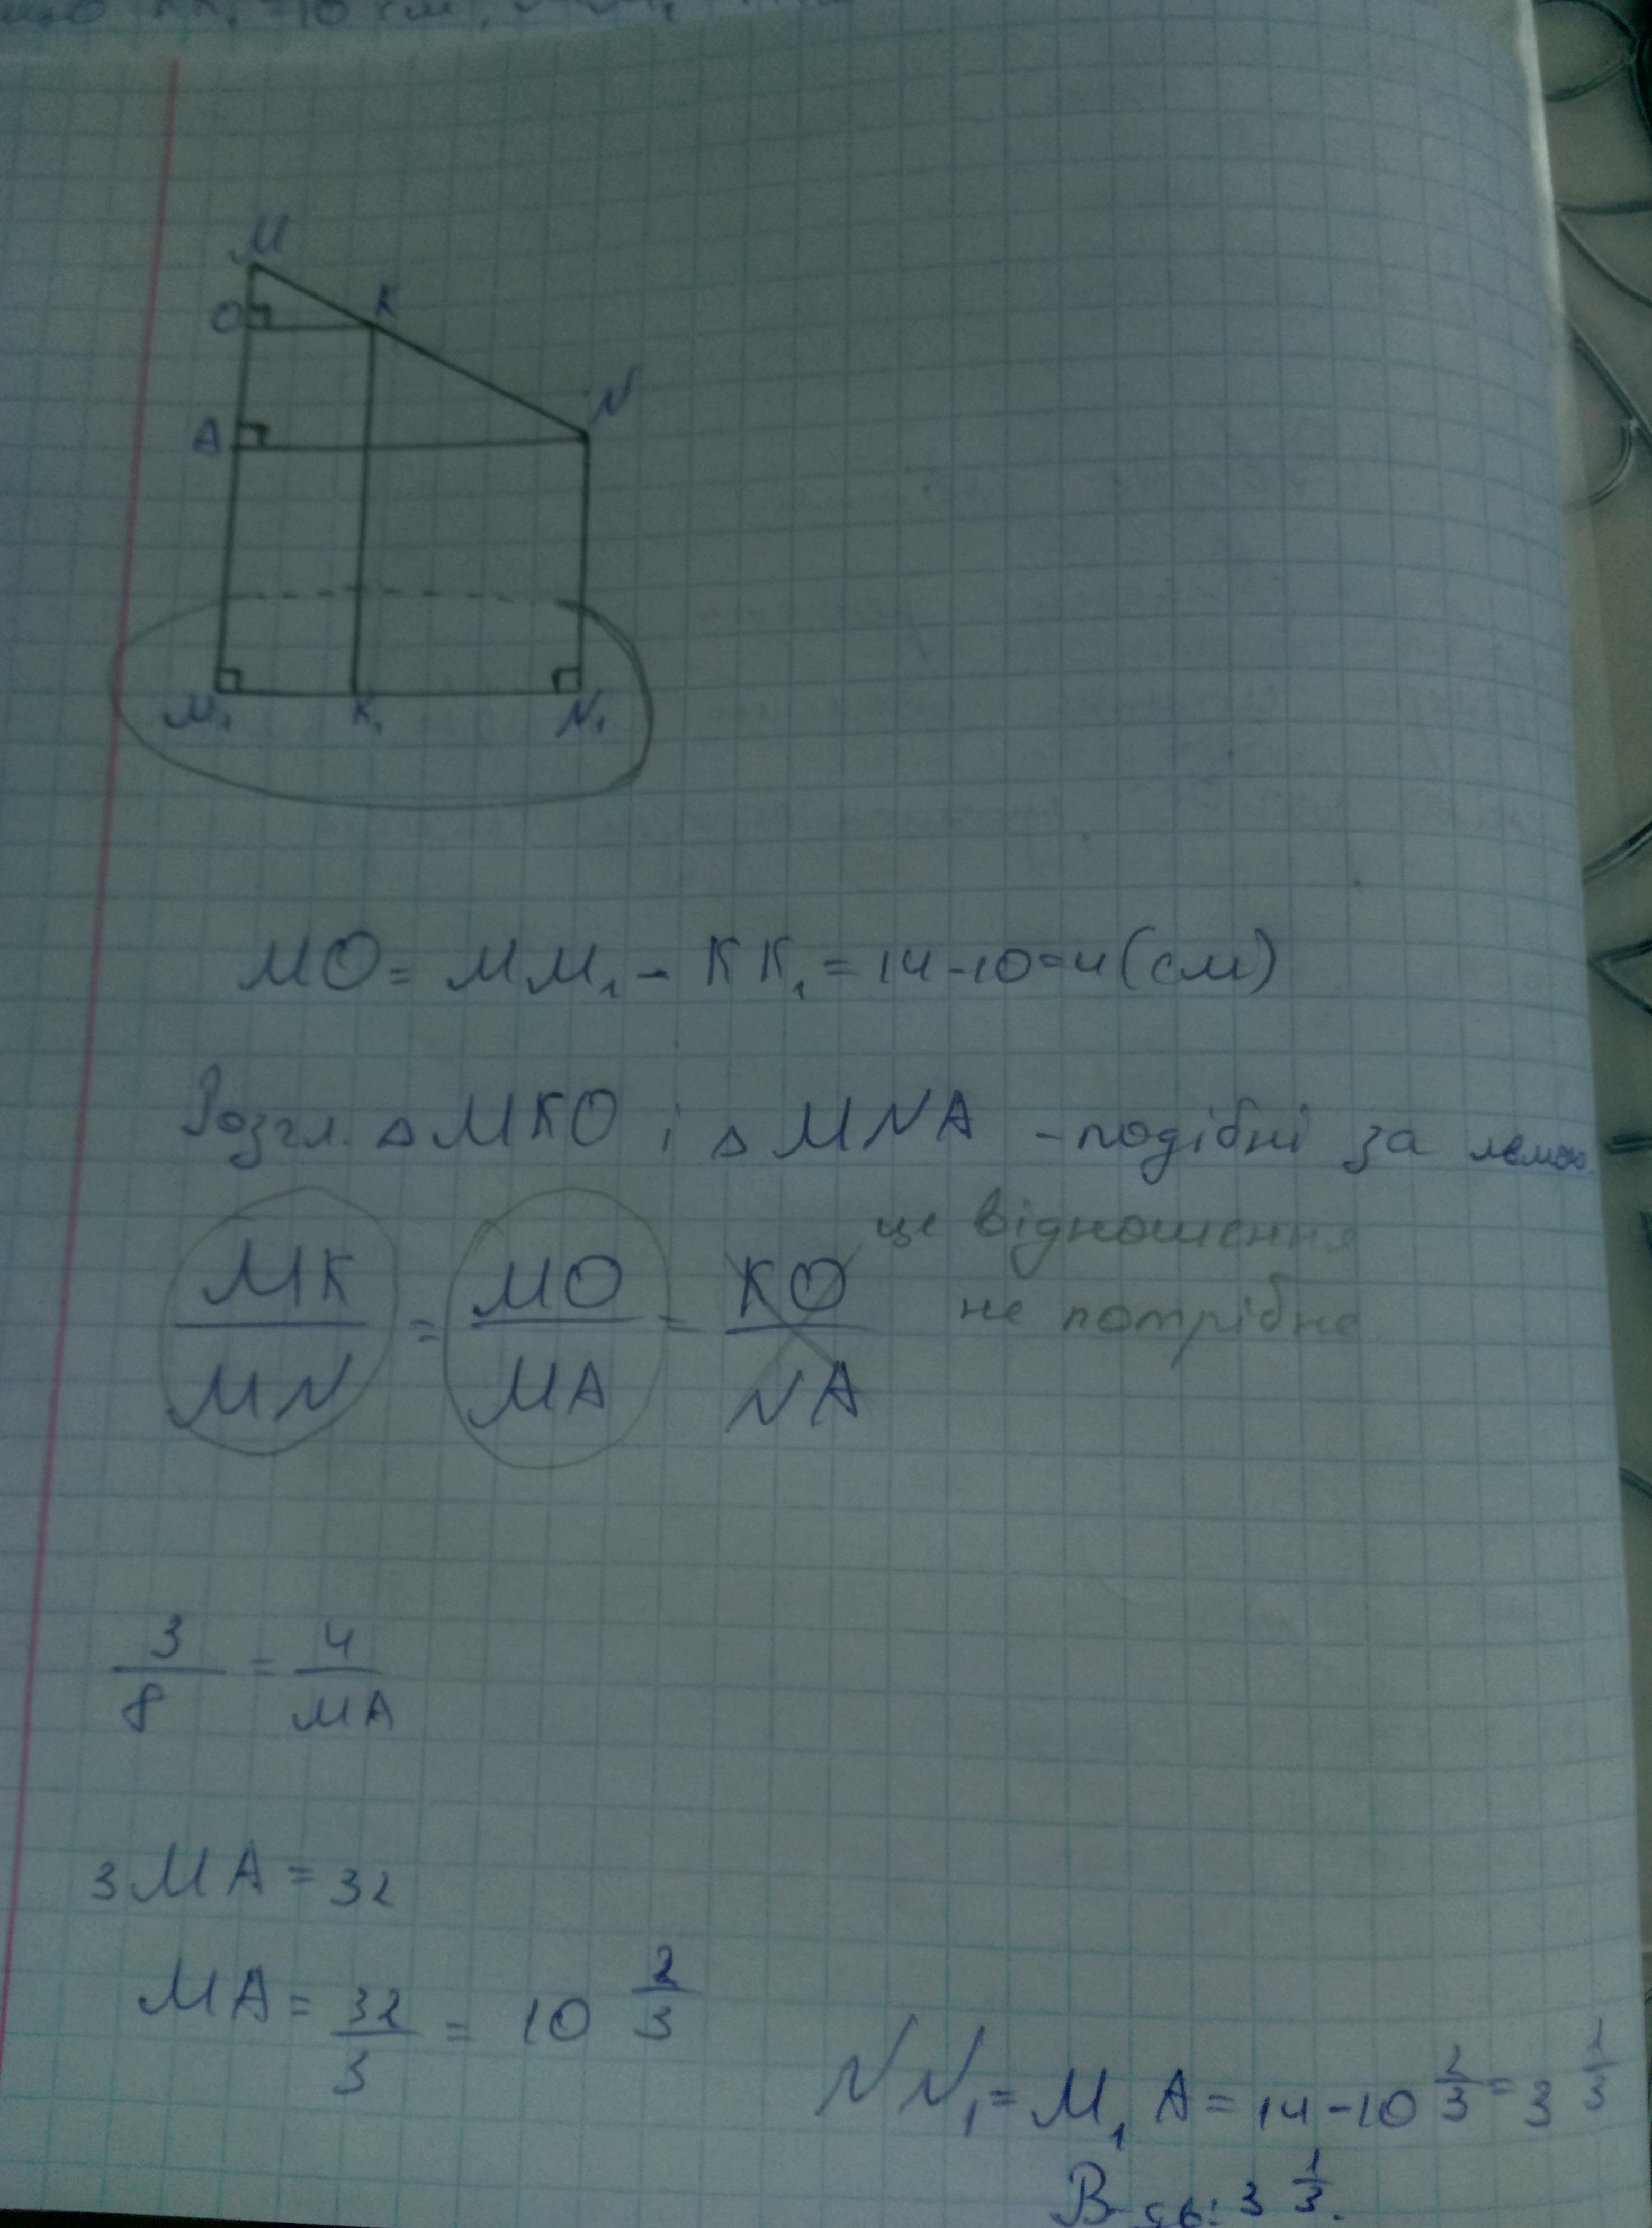 KK₁ = 10 см,
M
O
K
A
N
M₁ K₁ N₁
MO = MM₁ - KK₁ = 14-10=4(см)
Розгл. △MKO і △MNA - подібні за лемою.
MK/MN = MO/MA = KO/NA це відношення
не потрібне
3/8 = 4/MA
3MA = 32
MA = 32/3 = 10 2/3
NN₁ = M₁A = 14-10 2/3 = 3 1/3
В-дь: 3 1/3.